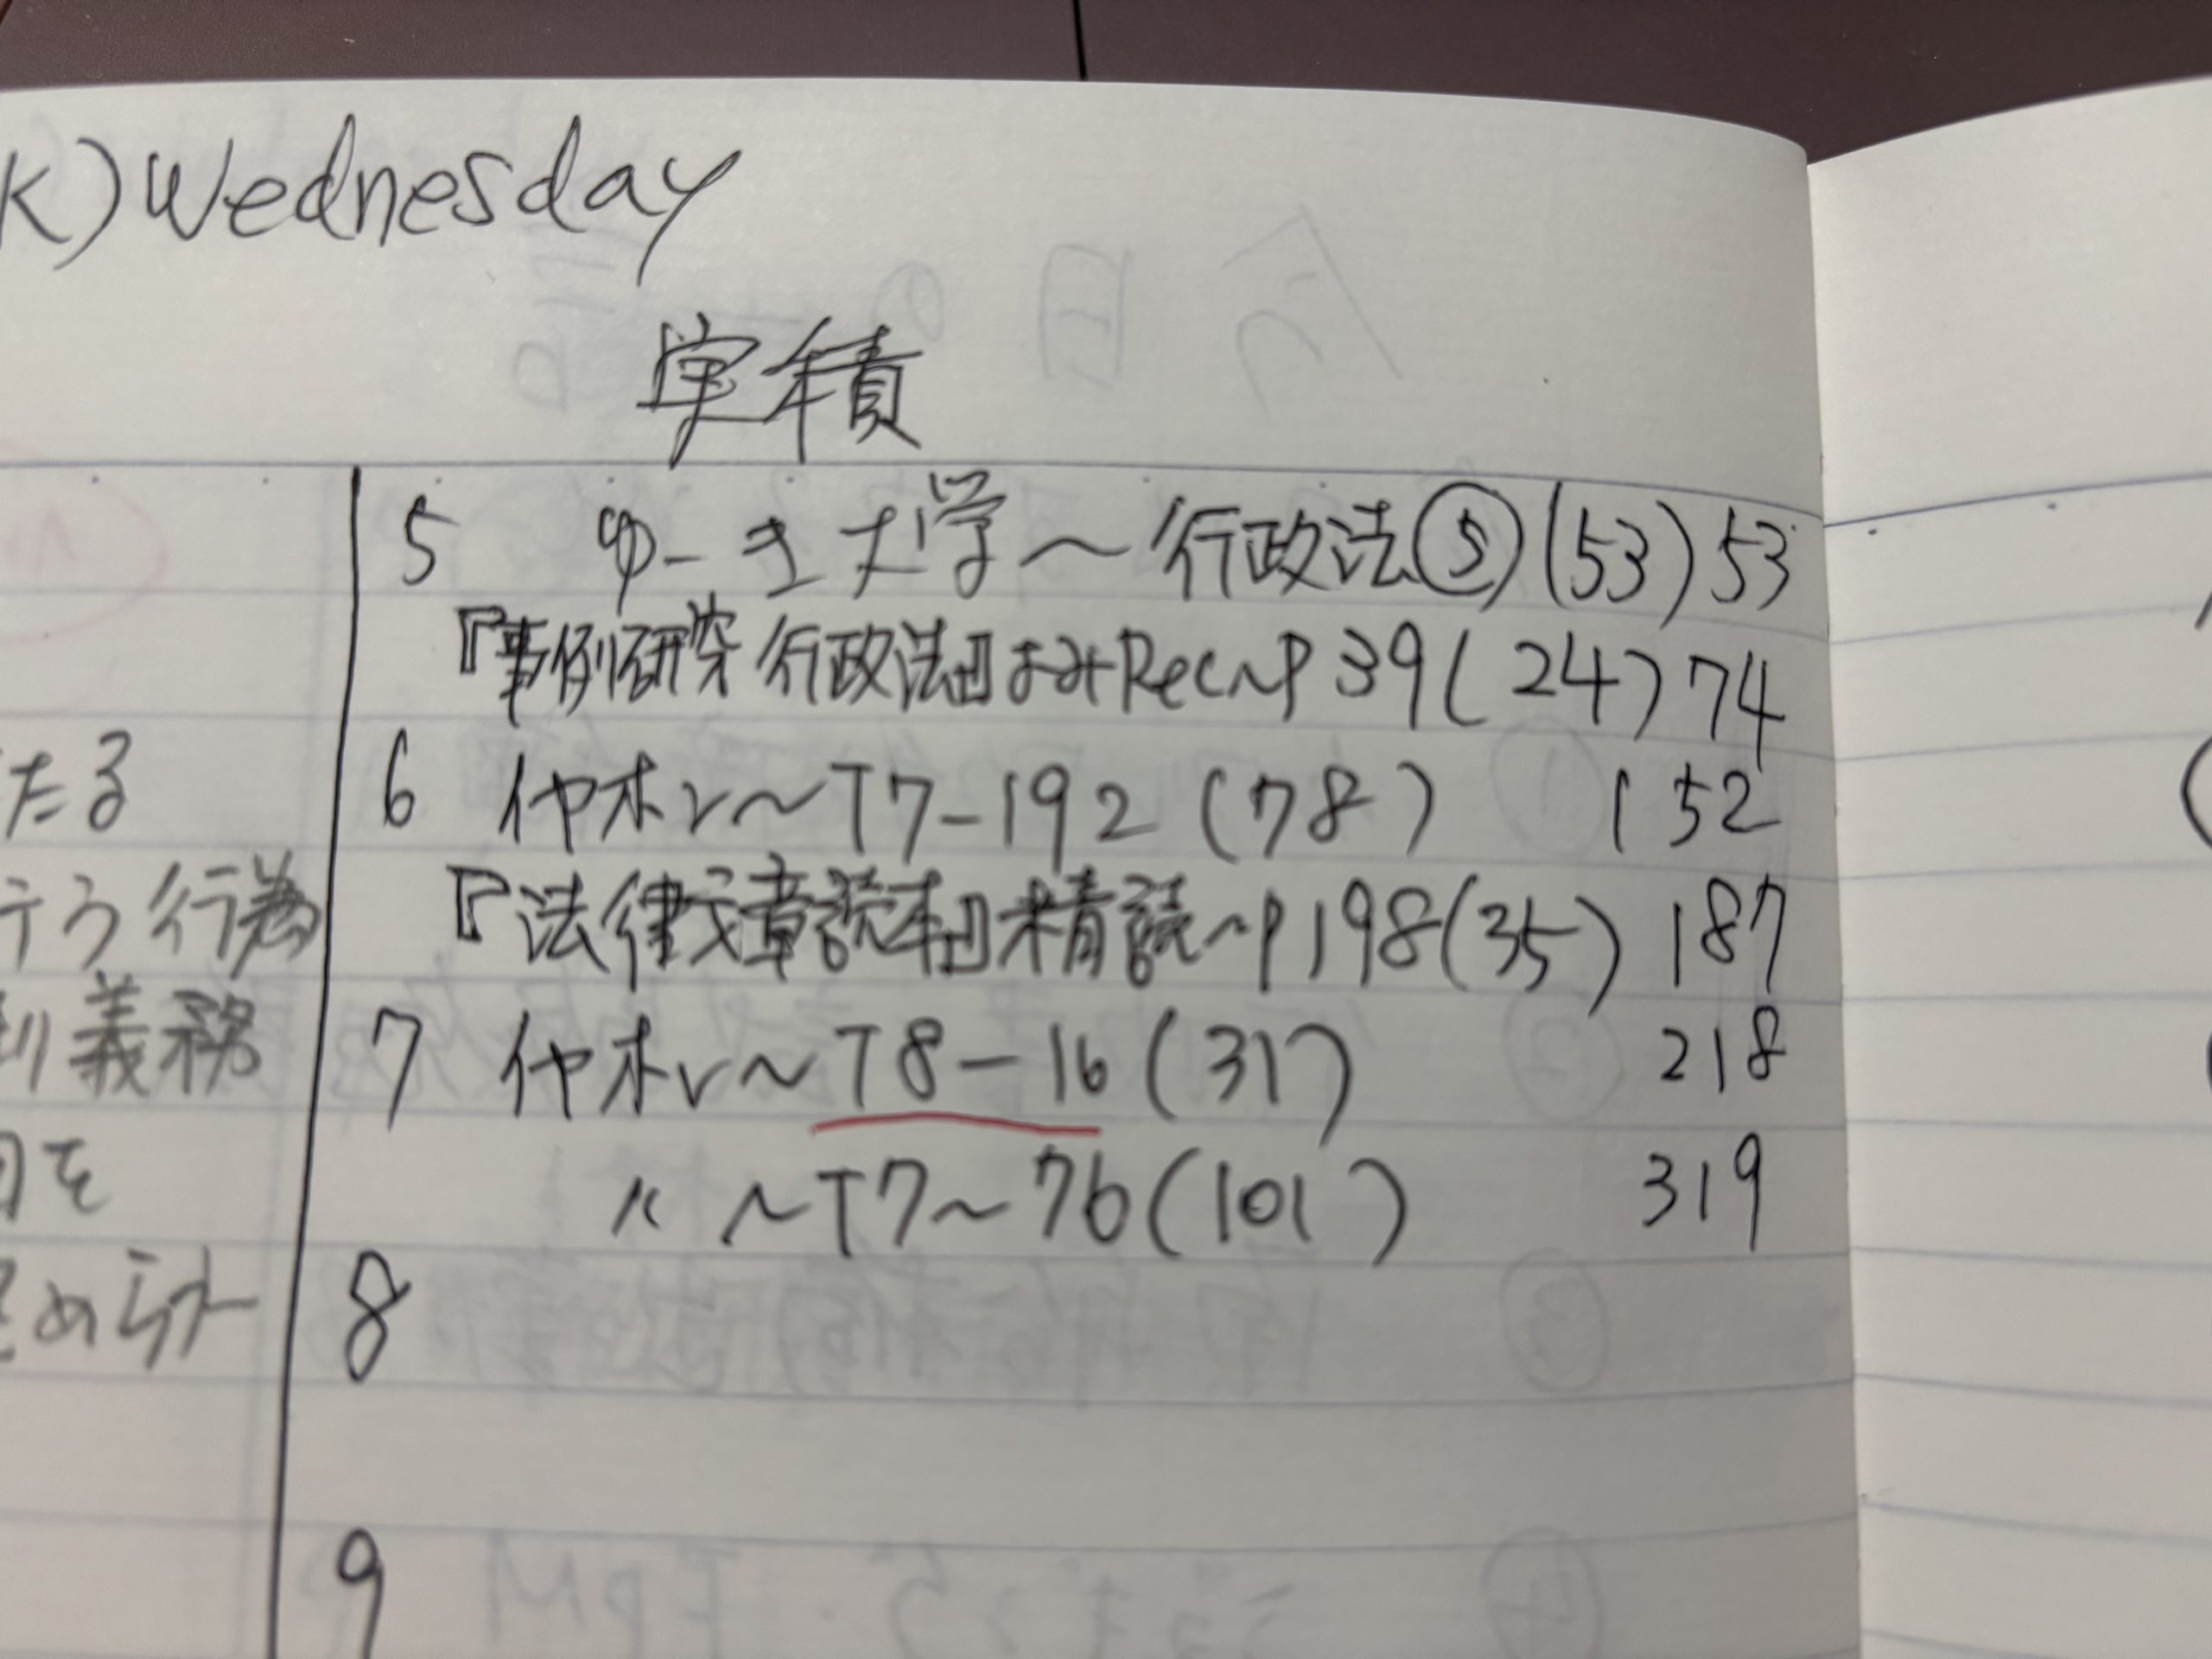 K) Wednesday
実積
5 ゆーき大学〜行政法⑤(53) 53
『事例研究 行政法』よみRec〜P39(24) 74
たる
6 イヤホン〜T7-192(78) 152
行う行為
『法律文章読本』精読〜P198(35) 187
義務
7 イヤホン〜T8-16(31) 218
を
〃 〜T7〜76(101) 319
8
9